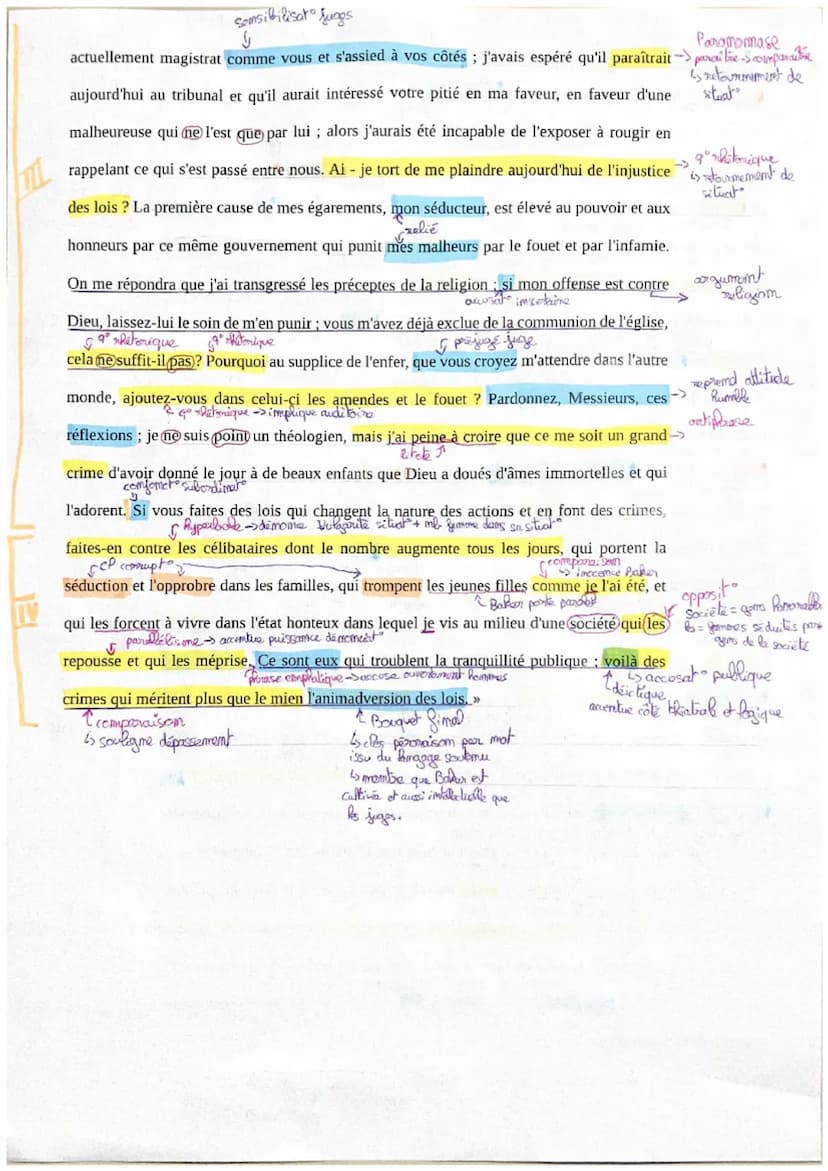 sensibilisat° juges
actuellement magistrat comme vous et s'assied à vos côtés ; j'avais espéré qu'il paraîtrait
Paronomase
paraître -> comparaître
↳ retournement de
situat°
aujourd'hui au tribunal et qu'il aurait intéressé votre pitié en ma faveur, en faveur d'une
malheureuse qui ne l'est que par lui ; alors j'aurais été incapable de l'exposer à rougir en
rappelant ce qui s'est passé entre nous. Ai - je tort de me plaindre aujourd'hui de l'injustice
q° rhétorique
↳ retournement de
situat°
III
des lois ? La première cause de mes égarements, mon séducteur, est élevé au pouvoir et aux
relié
honneurs par ce même gouvernement qui punit mes malheurs par le fouet et par l'infamie.
On me répondra que j'ai transgressé les préceptes de la religion ; si mon offense est contre
argument
religion
accusat° incertaine
Dieu, laissez-lui le soin de m'en punir ; vous m'avez déjà exclue de la communion de l'église,
q° rhétorique q° rhétorique préjugé juge
cela ne suffit-il pas ? Pourquoi au supplice de l'enfer, que vous croyez m'attendre dans l'autre
monde, ajoutez-vous dans celui-çi les amendes et le fouet ? Pardonnez, Messieurs, ces
reprend attitude
humble
q° rhétorique -> implique auditoire
réflexions ; je ne suis point un théologien, mais j'ai peine à croire que ce me soit un grand
antiphrase
litote
crime d'avoir donné le jour à de beaux enfants que Dieu a doués d'âmes immortelles et qui
conjonct° subordinat°
l'adorent. Si vous faites des lois qui changent la nature des actions et en font des crimes,
hyperbole -> démontre vulgarité situat° + nb femme dans sa situat°
faites-en contre les célibataires dont le nombre augmente tous les jours, qui portent la
CP corrupt°
comparaison
-> innocence Baker
séduction et l'opprobre dans les familles, qui trompent les jeunes filles comme je l'ai été, et
Baker porte parole
opposit°
société = gens honorables
les = femmes séduites par
gens de la société
qui les forcent à vivre dans l'état honteux dans lequel je vis au milieu d'une société qui les
IV
parallélisme -> accentue puissance dénonciat°
repousse et qui les méprise. Ce sont eux qui troublent la tranquillité publique ; voilà des
phrase emphatique -> accuse ouvertement hommes
↳ accusat° publique
déictique
accentue côté théâtral et logique
crimes qui méritent plus que le mien l'animadversion des lois. »
comparaison
↳ souligne dépassement
Bouquet final
↳ clos péroraison par mot
issu du langage soutenu
↳ montre que Baker est
cultivée et aussi intellectuelle que
les juges.